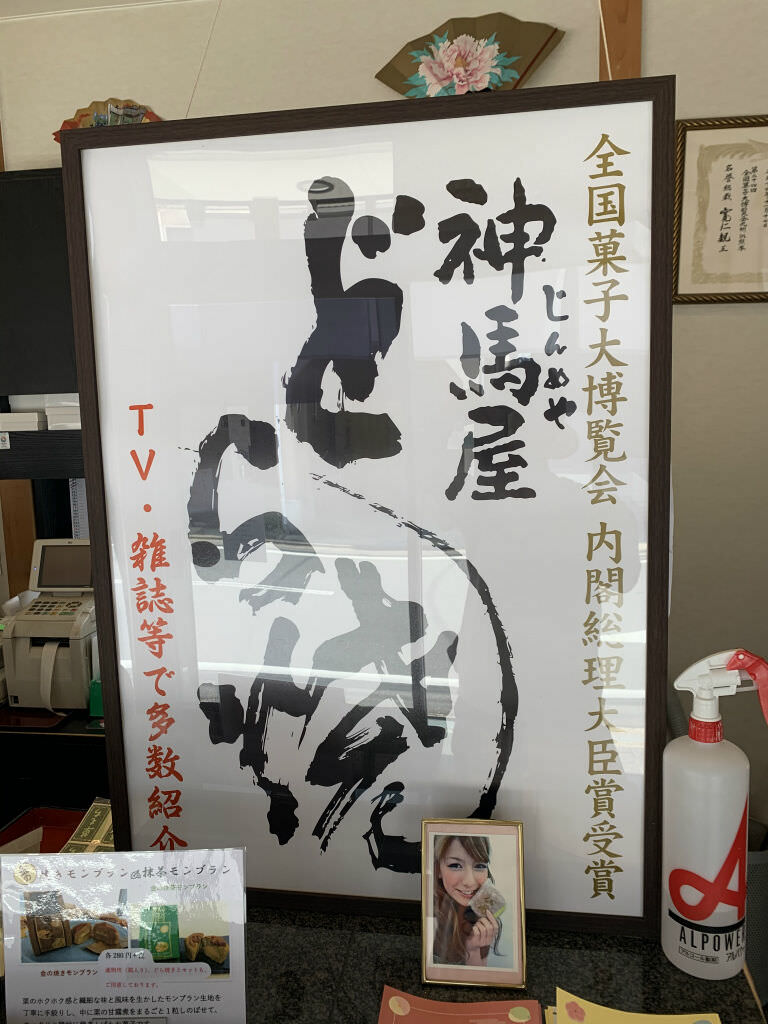 全国菓子大博覧会 内閣総理大臣賞受賞
神馬屋
じんめや
どら焼
TV・雑誌等で多数紹介
名誉総裁 寛仁親王
焼きモンブラン
抹茶モンブラン
金の抹茶モンブラン
金の焼きモンブラン
各280円
ご用意しております。
栗のホクホク感と繊細な味と風味を生かしたモンブラン生地を
丁寧に手絞りし、中に栗の甘露煮をまるごと1粒しのばせて、
ALPOWER
アルコール製剤